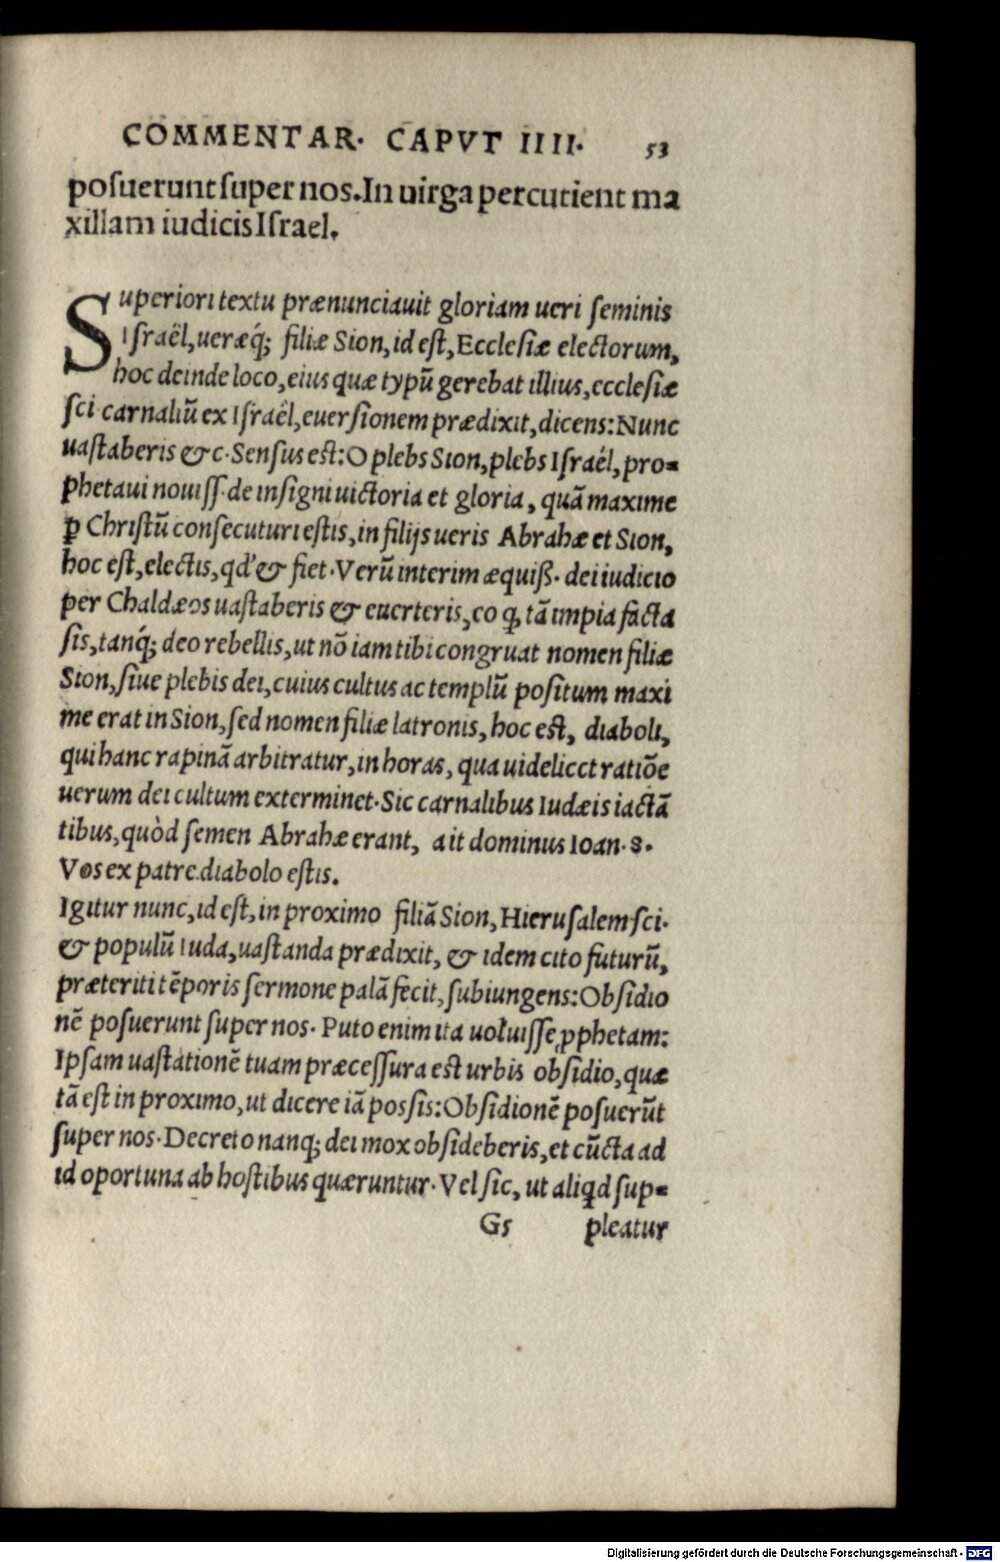 COMMENTAR. CAPVT IIII. 53
posuerunt super nos. In uirga percutient ma
xillam iudicis Israel.
Superiori textu prænunciauit gloriam ueri seminis
Israël, ueræq́; filiæ Sion, id est, Ecclesiæ electorum,
hoc deinde loco, eius quæ typū gerebat illius, ecclesiæ
sci. carnaliū ex Israël, euersionem prædixit, dicens: Nunc
uastaberis &c. Sensus est: O plebs Sion, plebs Israël, pro-
phetaui nouiss. de insigni uictoria et gloria, quā maxime
ꝑ Christū consecuturi estis, in filijs ueris Abrahæ et Sion,
hoc est, electis, qd' & fiet. Verū interim æquiß. dei iudicio
per Chaldæos uastaberis & euerteris, eo ꝙ tā impia facta
sis, tanq́; deo rebellis, ut nō iam tibi congruat nomen filiæ
Sion, siue plebis dei, cuius cultus ac templū positum maxi
me erat in Sion, sed nomen filiæ latronis, hoc est, diaboli,
qui hanc rapinā arbitratur, in horas, qua uidelicet ratiōe
uerum dei cultum exterminet. Sic carnalibus Iudæis iactā
tibus, quòd semen Abrahæ erant, ait dominus Ioan. 8.
Vos ex patre diabolo estis.
Igitur nunc, id est, in proximo filiā Sion, Hierusalem sci.
& populū Iuda, uastanda prædixit, & idem cito futurū,
præteriti tēporis sermone palā fecit, subiungens: Obsidio
nē posuerunt super nos. Puto enim ita uoluisse ꝓphetam:
Ipsam uastationē tuam præcessura est urbis obsidio, quæ
tā est in proximo, ut dicere iā possis: Obsidionē posuerūt
super nos. Decreto nanq; dei mox obsideberis, et cūcta ad
id oportuna ab hostibus quæruntur. Vel sic, ut aliꝗd sup-
G5 pleatur
Digitalisierung gefördert durch die Deutsche Forschungsgemeinschaft - DFG